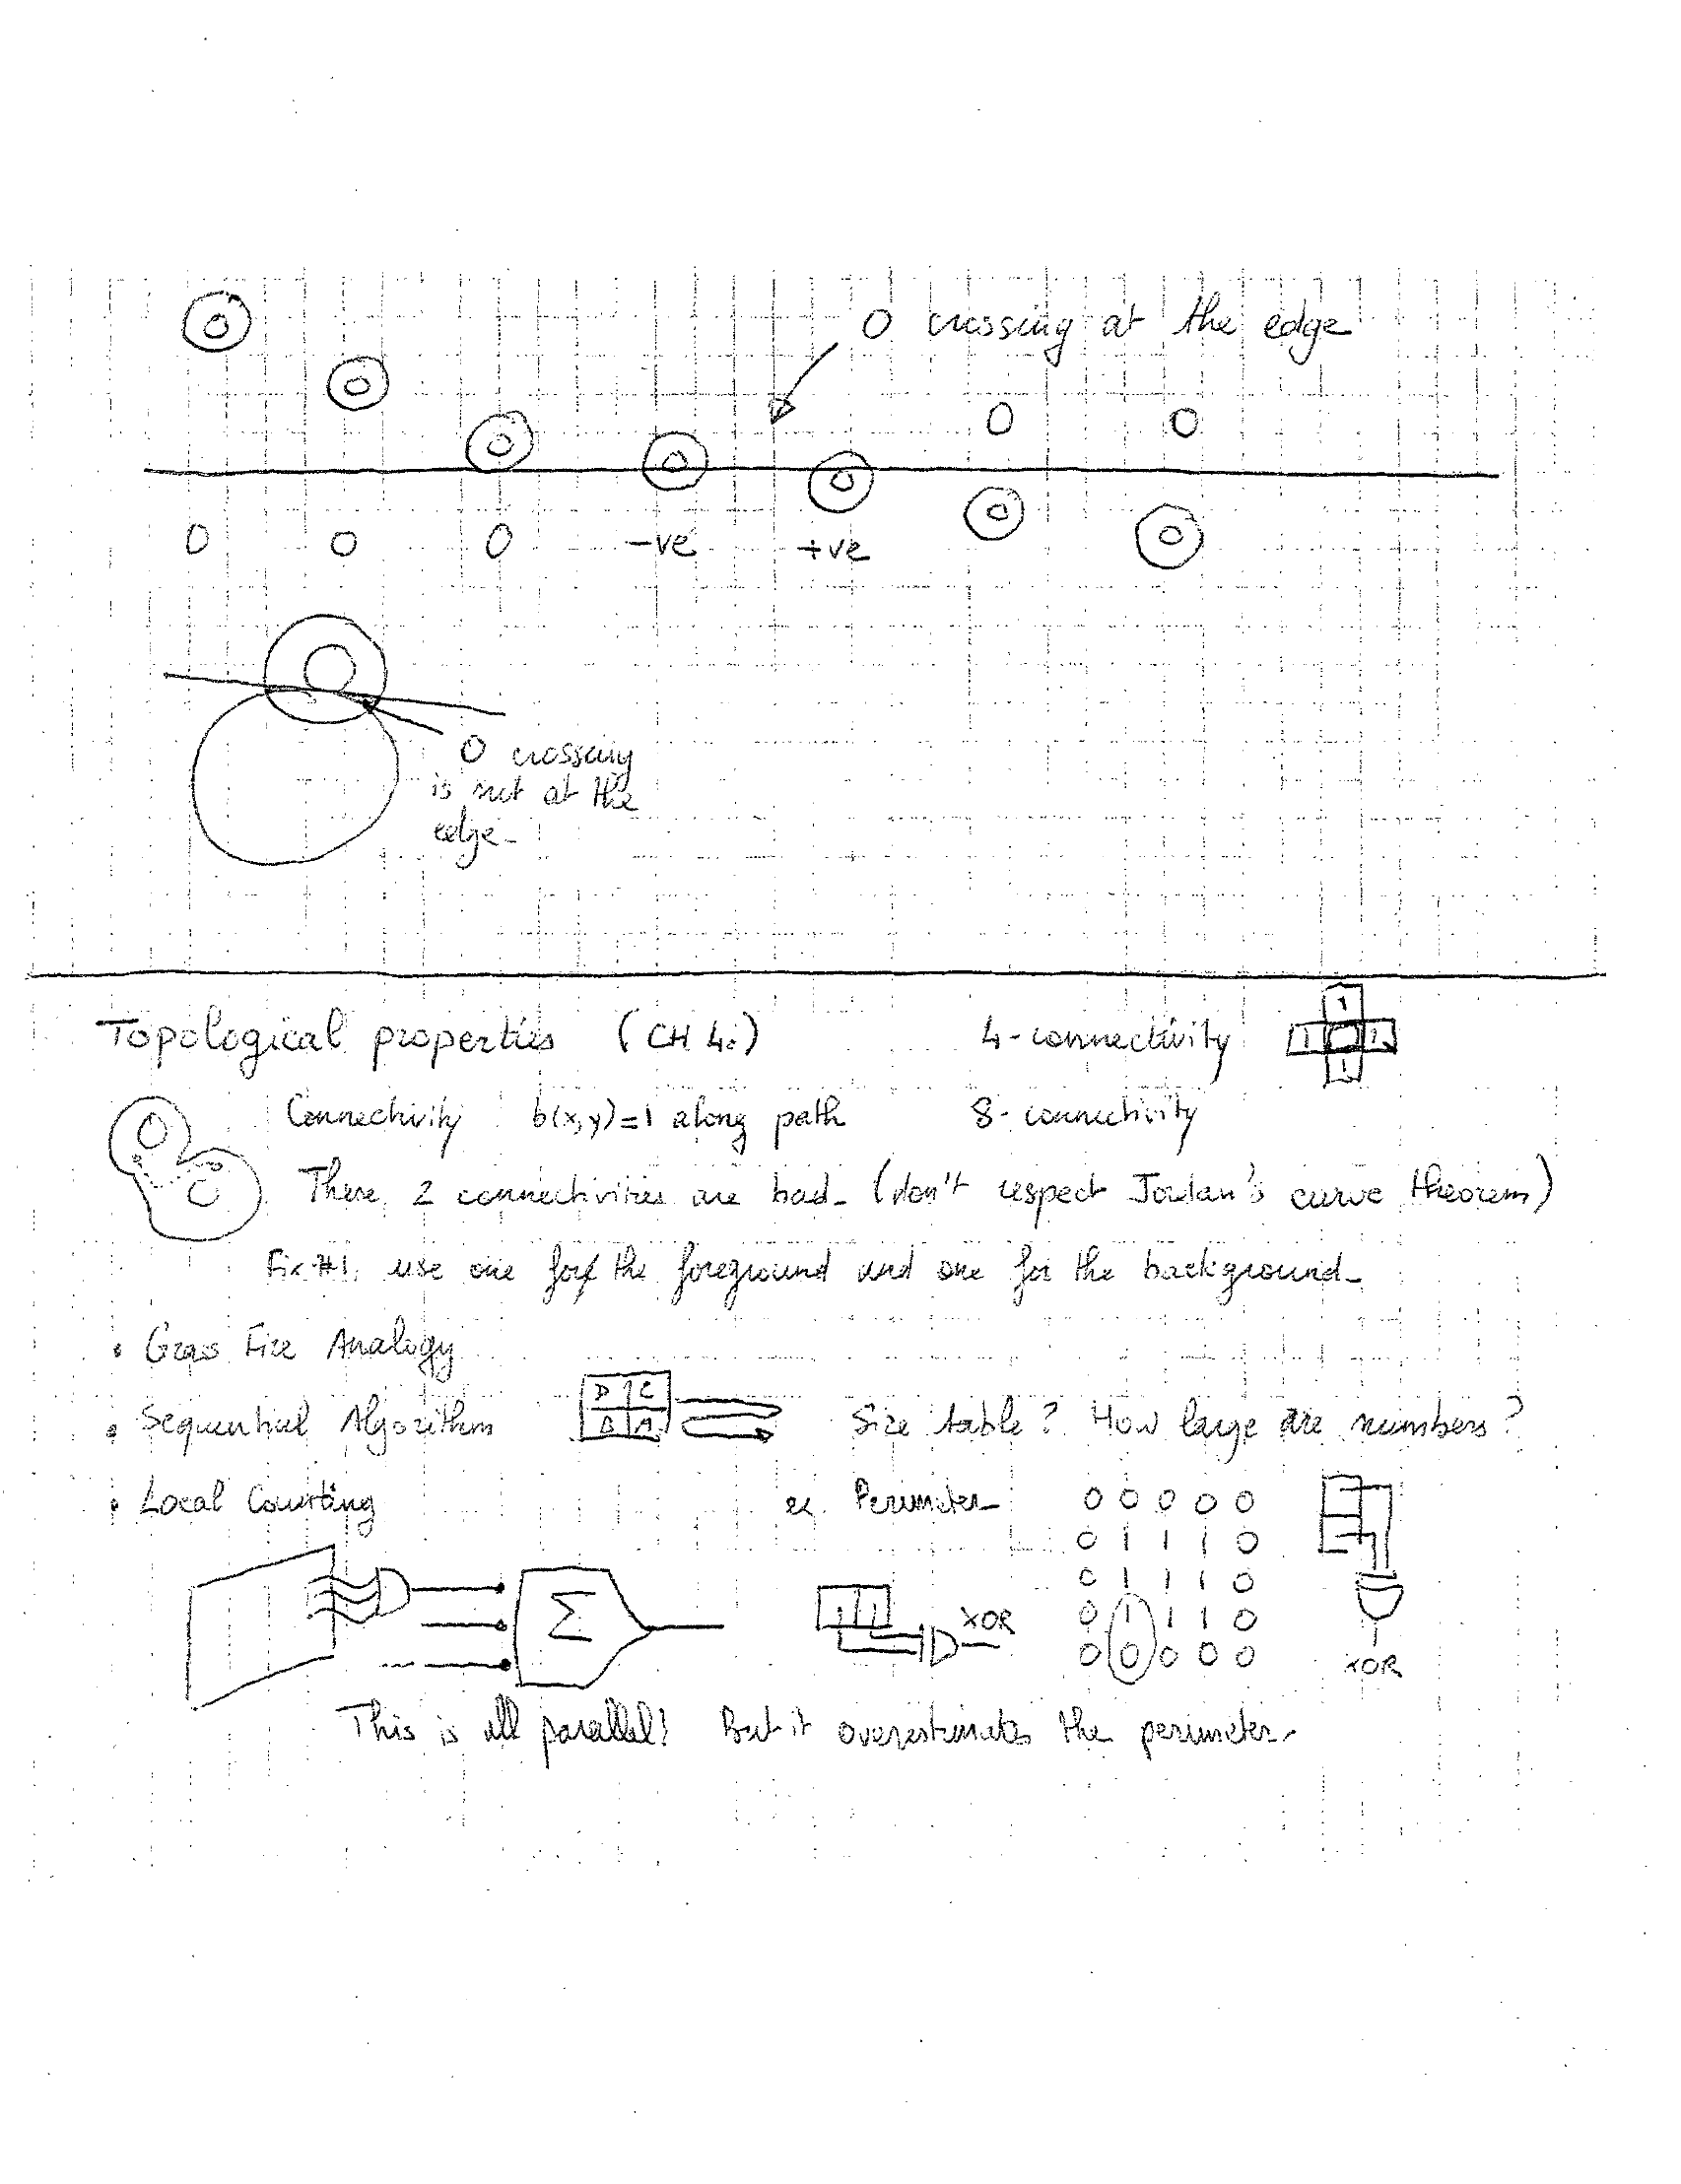 0 crossing at the edge
0 0
0 0 0 -ve +ve
0 crossing
is not at the
edge-
Topological properties (CH 4:) 4-connectivity 1 1 1 1
Connectivity b(x,y)=1 along path 8-connectivity
These 2 connectivities are bad- (don't respect Jordan's curve theorem)
Fix #1: use one for the foreground and one for the background-
• Grass Fire Analogy
D C
B A
• Sequential Algorithm Size table? How large are numbers?
• Local Counting ex. Perimeter-
0 0 0 0 0
0 1 1 1 0
0 1 1 1 0
0 1 1 1 0
0 0 0 0 0
Σ
1 1 XOR
XOR
This is all parallel! But it overestimates the perimeter-